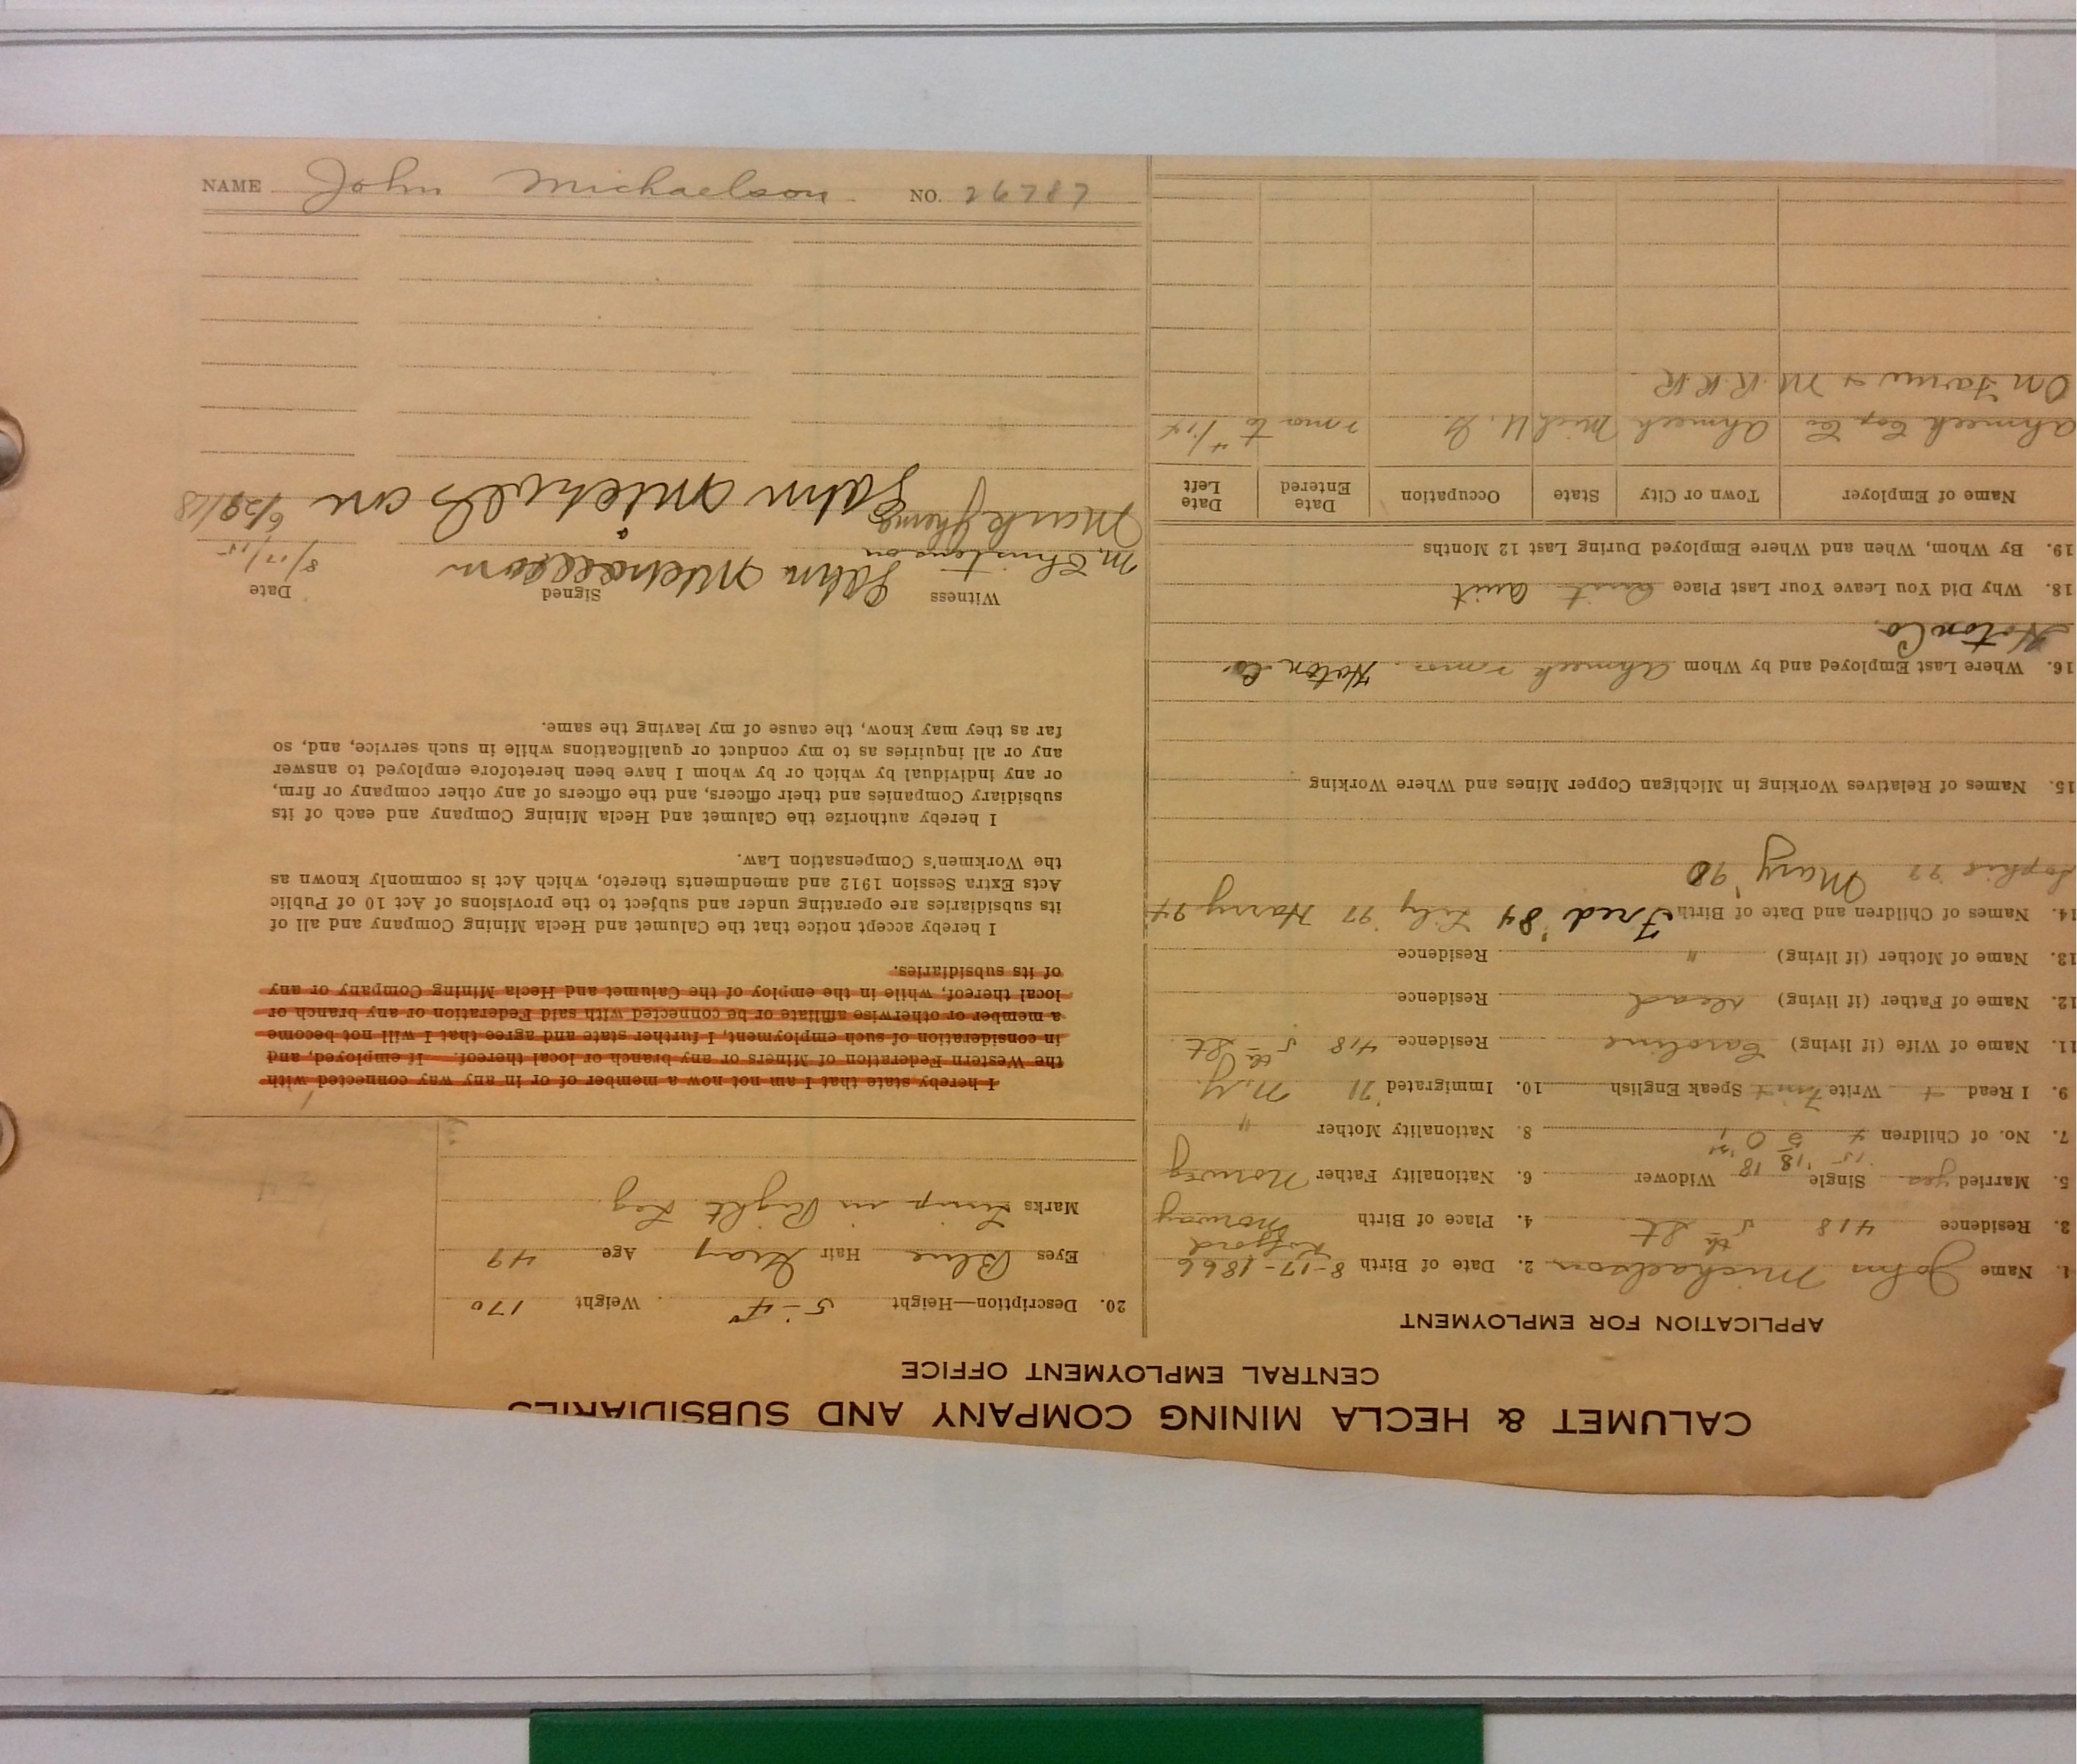 CALUMET & HECLA MINING COMPANY AND SUBSIDIARIES
CENTRAL EMPLOYMENT OFFICE
APPLICATION FOR EMPLOYMENT
1. Name John Michaelson 2. Date of Birth 8-17-1866
3. Residence 418 5th St 4. Place of Birth Norway
5. Married yes Single Widower 6. Nationality Father Norweg
15 '18 18
7. No. of Children 8. Nationality Mother "
9. I Read + Write Speak English 10. Immigrated '71 N.Y.
11. Name of Wife (if living) Caroline Residence 418 5th St.
12. Name of Father (if living) dead Residence
13. Name of Mother (if living) " Residence
14. Names of Children and Date of Birth Fred '84 Lily '97 Harry 94
Mary '90
15. Names of Relatives Working in Michigan Copper Mines and Where Working
16. Where Last Employed and by Whom Ahmeek Hoton Co
Hoton Co.
18. Why Did You Leave Your Last Place Quit Quit
19. By Whom, When and Where Employed During Last 12 Months
Name of Employer Town or City State Occupation Date Entered Date Left
Ahmeek Ahmeek Mich
On Farm + M R.R.R
20. Description—Height 5-4" Weight 170
Eyes Blue Hair Gray Age 49
Marks Limp in Right Leg
I hereby state that I am not now a member of or in any way connected with
the Western Federation of Miners or any branch or local thereof. If employed, and
in consideration of such employment, I further state and agree that I will not become
a member or otherwise affiliate or be connected with said Federation or any branch or
local thereof, while in the employ of the Calumet and Hecla Mining Company or any
of its subsidiaries.
I hereby accept notice that the Calumet and Hecla Mining Company and all of
its subsidiaries are operating under and subject to the provisions of Act 10 of Public
Acts Extra Session 1912 and amendments thereto, which Act is commonly known as
the Workmen's Compensation Law.
I hereby authorize the Calumet and Hecla Mining Company and each of its
subsidiary Companies and their officers, and the officers of any other company or firm,
or any individual by which or by whom I have been heretofore employed to answer
any or all inquiries as to my conduct or qualifications while in such service, and, so
far as they may know, the cause of my leaving the same.
Witness Signed Date
M. Christenson John 8/17/15
Mark John 6/29/18
NAME John Michaelson NO. 26787